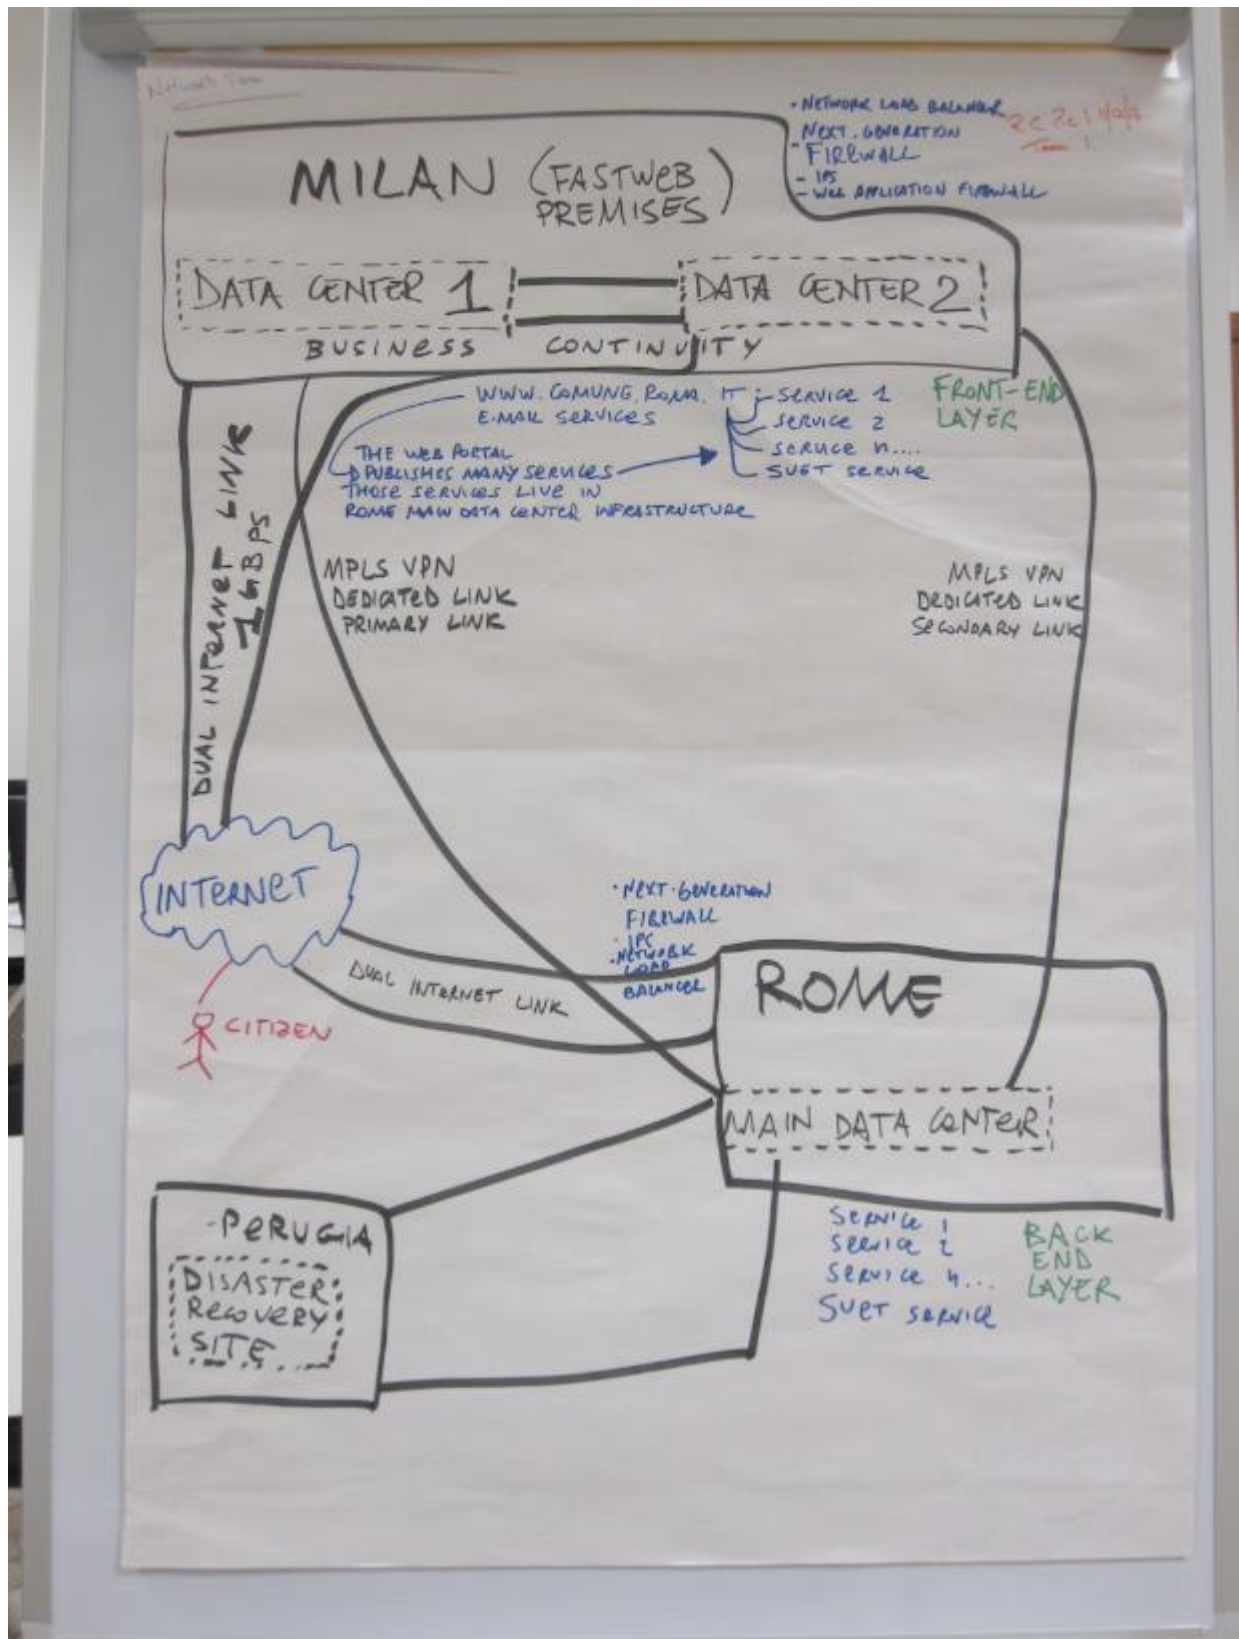 Network Team
MILAN (FASTWEB
PREMISES)
• NETWORK LOAD BALANCER
- NEXT. GENERATION
FIREWALL
- IPS
- WEB APPLICATION FIREWALL
Team 1
DATA CENTER 1
DATA CENTER 2
BUSINESS CONTINUITY
WWW.COMUNE.ROMA.IT
E-MAIL SERVICES
- SERVICE 1
SERVICE 2
SERVICE n....
SUET SERVICE
FRONT-END
LAYER
THE WEB PORTAL
PUBLISHES MANY SERVICES
THOSE SERVICES LIVE IN
ROME MAIN DATA CENTER INFRASTRUCTURE
DUAL INTERNET LINK
1 GBPS
MPLS VPN
DEDICATED LINK
PRIMARY LINK
MPLS VPN
DEDICATED LINK
SECONDARY LINK
INTERNET
CITIZEN
DUAL INTERNET LINK
• NEXT-GENERATION
FIREWALL
• IPC
• NETWORK
LOAD
BALANCER
ROME
MAIN DATA CENTER
SERVICE 1
SERVICE 2
SERVICE n...
SUET SERVICE
BACK
END
LAYER
- PERUGIA
DISASTER
RECOVERY
SITE